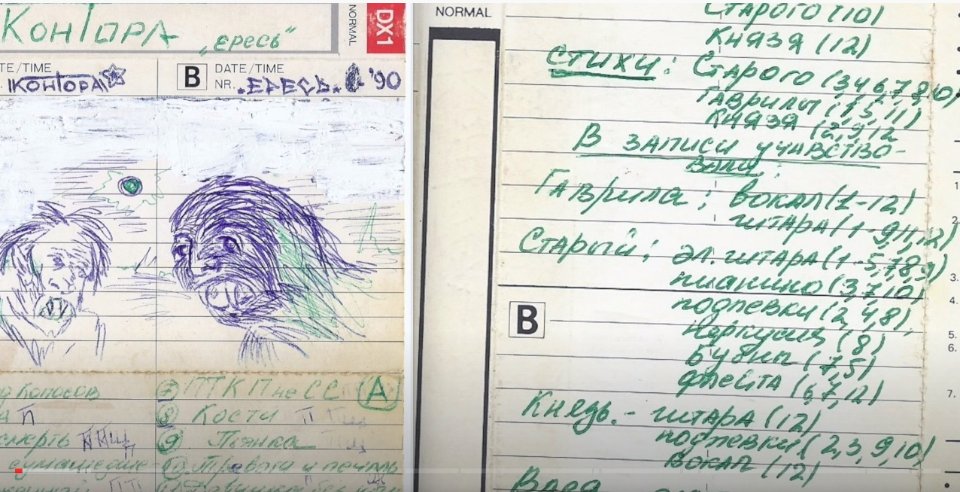 КОНТОРА „ересь"
NORMAL
DX1
TE/TIME
КОНТОРА
B
DATE/TIME
NR. ЕРЕСЬ. '90
колосов
7 ПТК П не СС
A
8 Кости п
смерть
9 Пьянка
сумасшедшие
10 Тревога и печаль
NORMAL
Старого (10)
Князя (12)
СТИХИ: Старого (3,4,6,7,8,10)
Гаврилы (1,5,11)
Князя (2,9,12
В записи участво-
вали:
Гаврила: вокал (1-12)
гитара (1-9,11,12)
Старый: эл. гитара (1-5,7,8,9)
пианино (3,7,10)
подпевки (2,4,8)
перкуссия (8)
Бубны (7,5)
флейта (6,7,12)
B
Князь - гитара (12)
подпевки (2,3,9,10)
вокал (12)
1
2.
3.
4.
5.
6.
7.